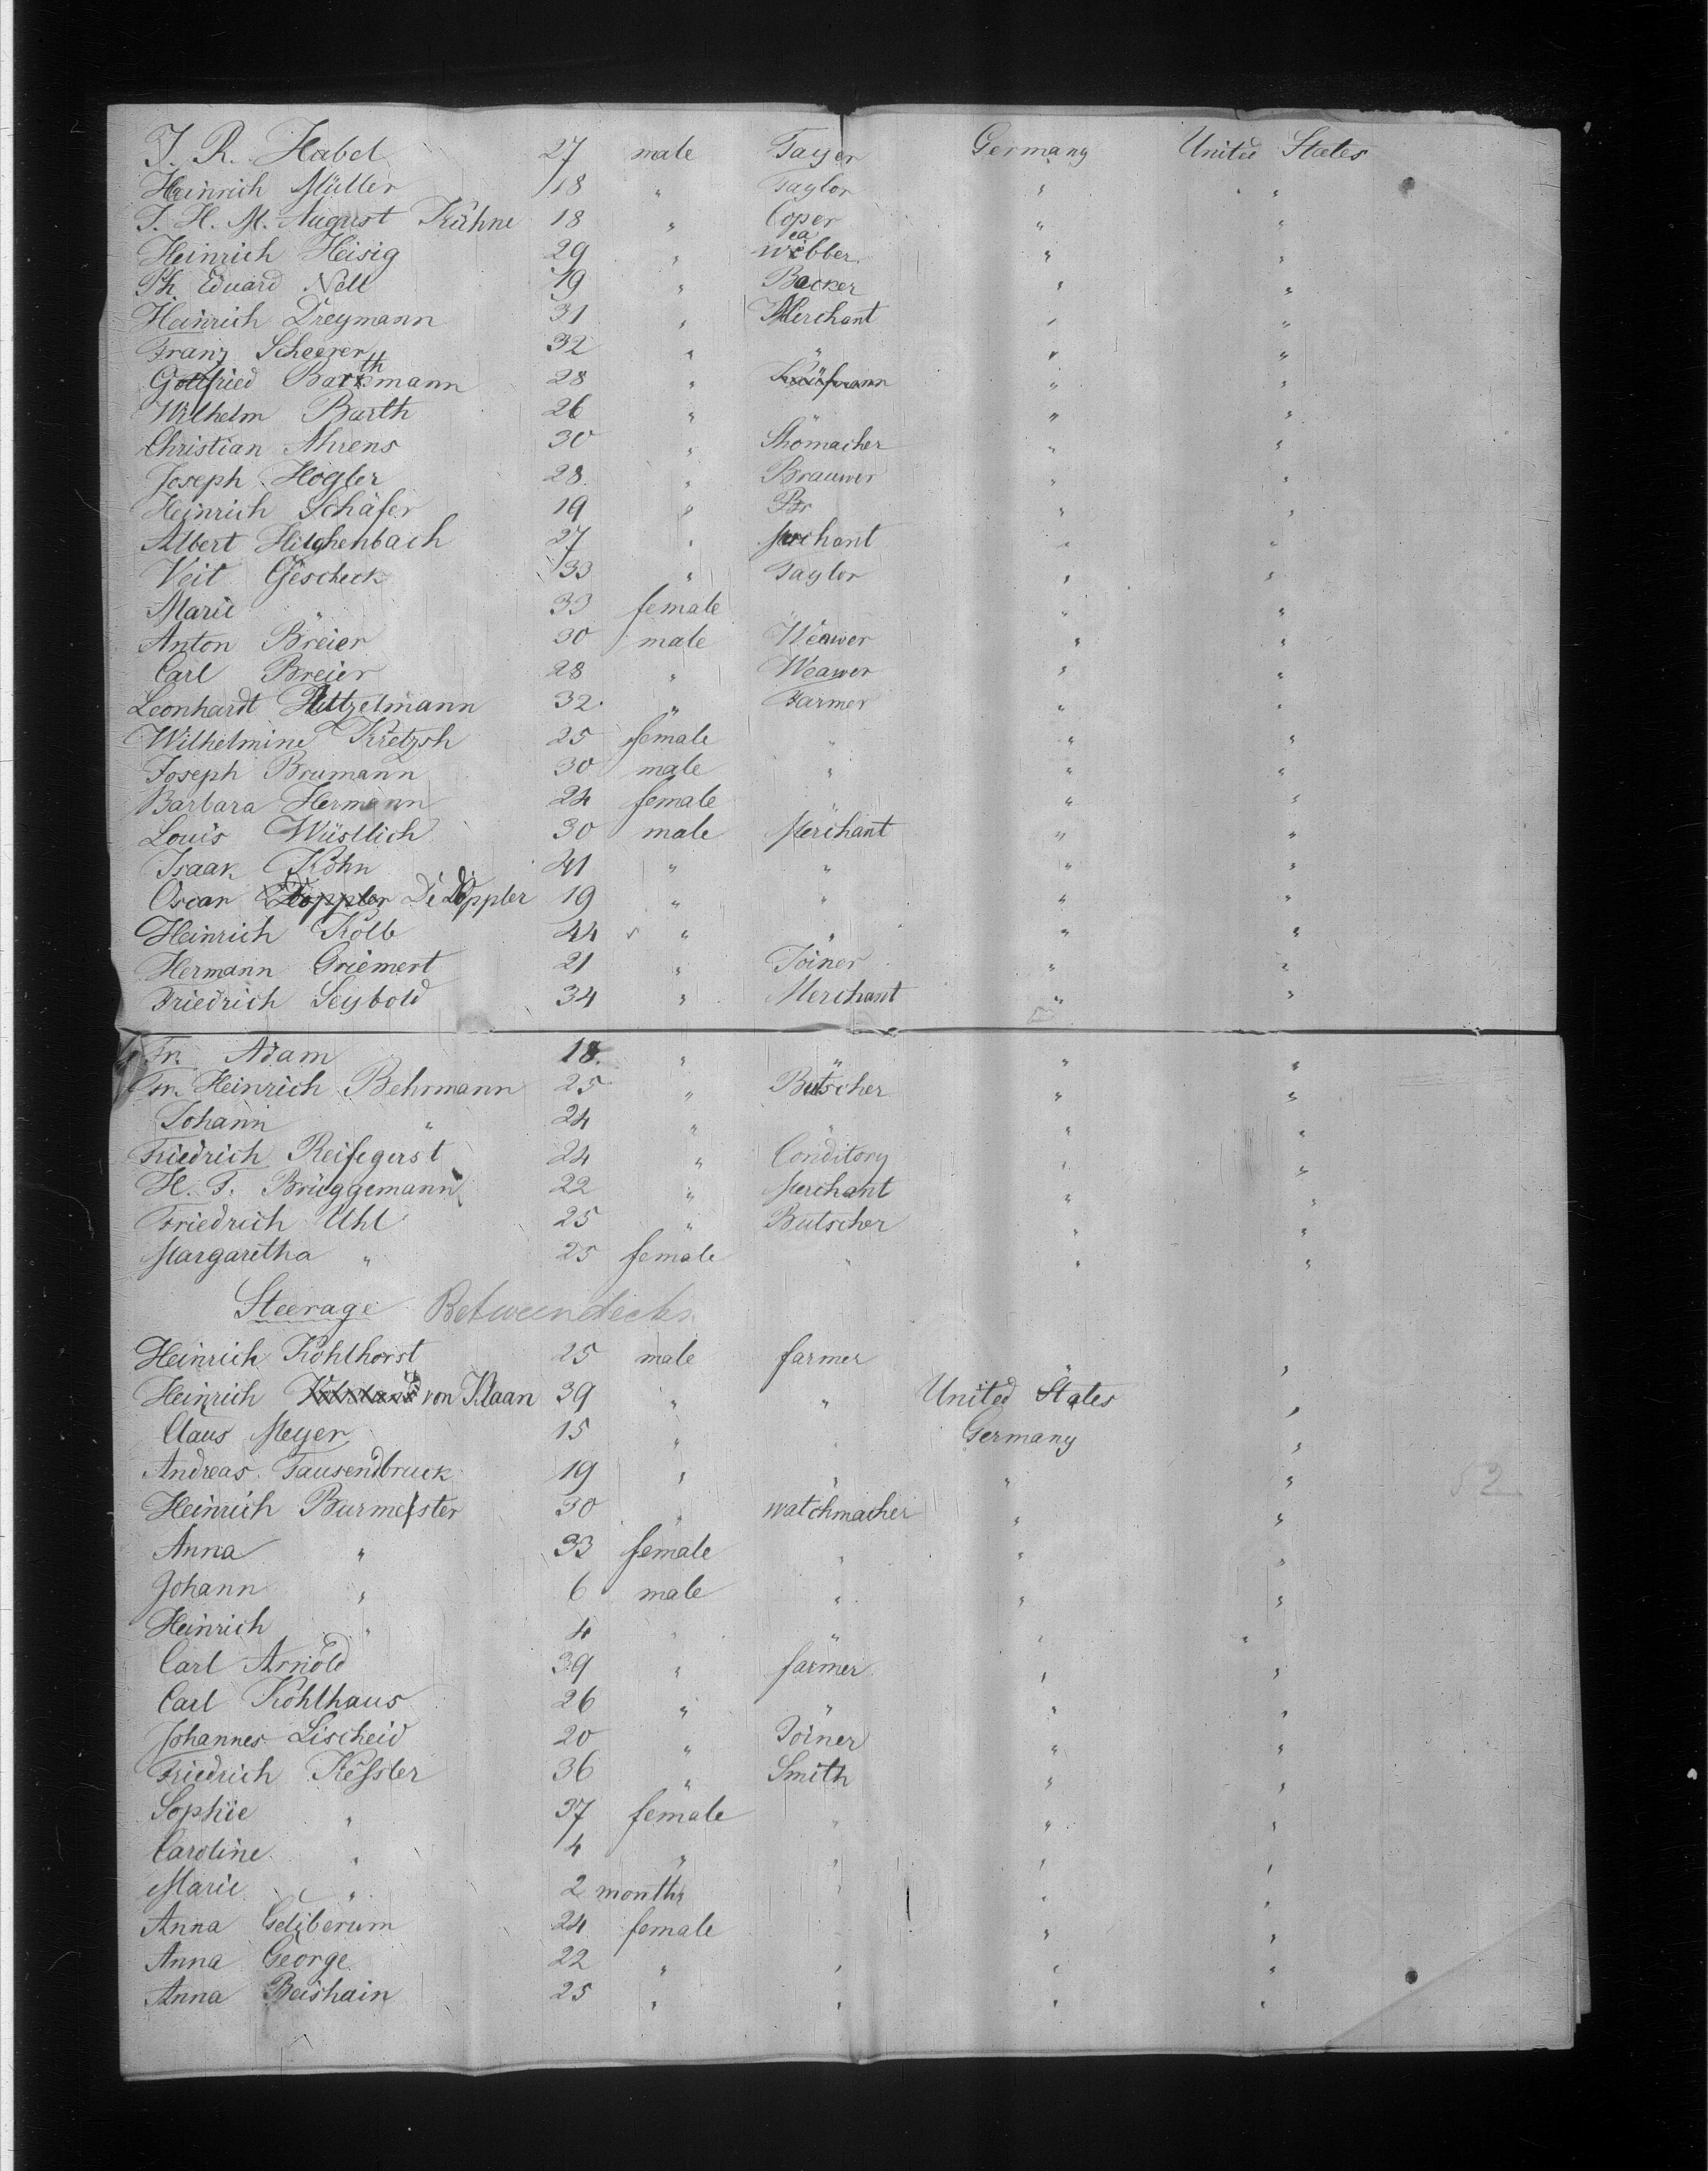 J. R. Habel 27 male Tayer Germany United States
Heinrich Müller 18 " Taylor " "
J. H. M. August Kühne 18 " Coper " "
Heinrich Heisig 29 " weabber " "
Ph. Eduard Nell 19 " Backer " "
Heinrich Dreymann 31 " Merchant " "
Franz Scheerer 32 " " " "
Gottfried Barthmann 28 " Kaufmann " "
Wilhelm Barth 26 " " " "
Christian Ahrens 30 " Shomacher " "
Joseph Hogler 28 " Brauwer " "
Heinrich Schäfer 19 " Br " "
Albert Hilghenbach 27 " Merchant " "
Veit Gescheck 33 " Taylor " "
Marie " 33 female " "
Anton Breier 30 male Weawer " "
Carl Breier 28 " Weawer " "
Leonhardt Hutzelmann 32 " Farmer " "
Wilhelmine Kretzsh 25 female " " "
Joseph Brumann 30 male " " "
Barbara Hermann 24 female " "
Louis Wüstlich 30 male Merchant " "
Isaak Kohn 41 " " " "
Oscar Doppler De Doppler 19 " " " "
Heinrich Kolb 44 " " " "
Hermann Griemert 21 " Joiner " "
Friedrich Seybold 34 " Merchant " "
Fr. Adam 18 " " " "
Fr. Heinrich Behrmann 25 " Butscher " "
Johann " 24 " " " "
Friedrich Reifegerst 24 " Conditory " "
H. F. Brüggemann 22 " Merchant " "
Friedrich Uhl 25 " Butscher " "
Margaretha " 25 female " " "
Steerage Betweendecks
Heinrich Kohlhorst 25 male farmer " "
Heinrich von Klaan 39 " " United States "
Claus Meyer 15 " " Germany "
Andreas Tausendbruck 19 " " " "
Heinrich Burmeister 30 " watchmacher " "
52
Anna " 33 female " " "
Johann " 6 male " " "
Heinrich " 4 " " " "
Carl Arnold 39 " farmer " "
Carl Kohlhaus 26 " " " "
Johannes Lischeid 20 " Joiner " "
Friedrich Kessler 36 " Smith " "
Sophie " 37 female " " "
Caroline " 4 " " " "
Marie " 2 months " " "
Anna Geliberum 24 female " "
Anna George 22 " " " "
Anna Beishain 25 " " " "